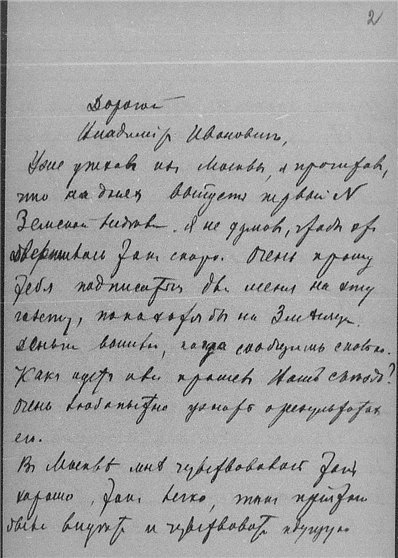 2
Дорогой
Владимір Ивановичъ,
Уже уѣхавъ изъ Москвы, я прочиталъ,
что на дняхъ выпустя первый N
Земской
Я не думалъ, чтобы
такъ скоро. Очень прошу
тебя подписаться для меня на эту
газету, пока хотя бы на
Деньги вышлю, когда сообщишь сколько.
Какъ идетъ или прошелъ Вашъ съѣздъ?
Очень любопытно узнать о результатахъ
его.
Въ Москвѣ мнѣ чувствовалось такъ
хорошо, такъ легко, такъ пріятно
было видѣть и чувствовать